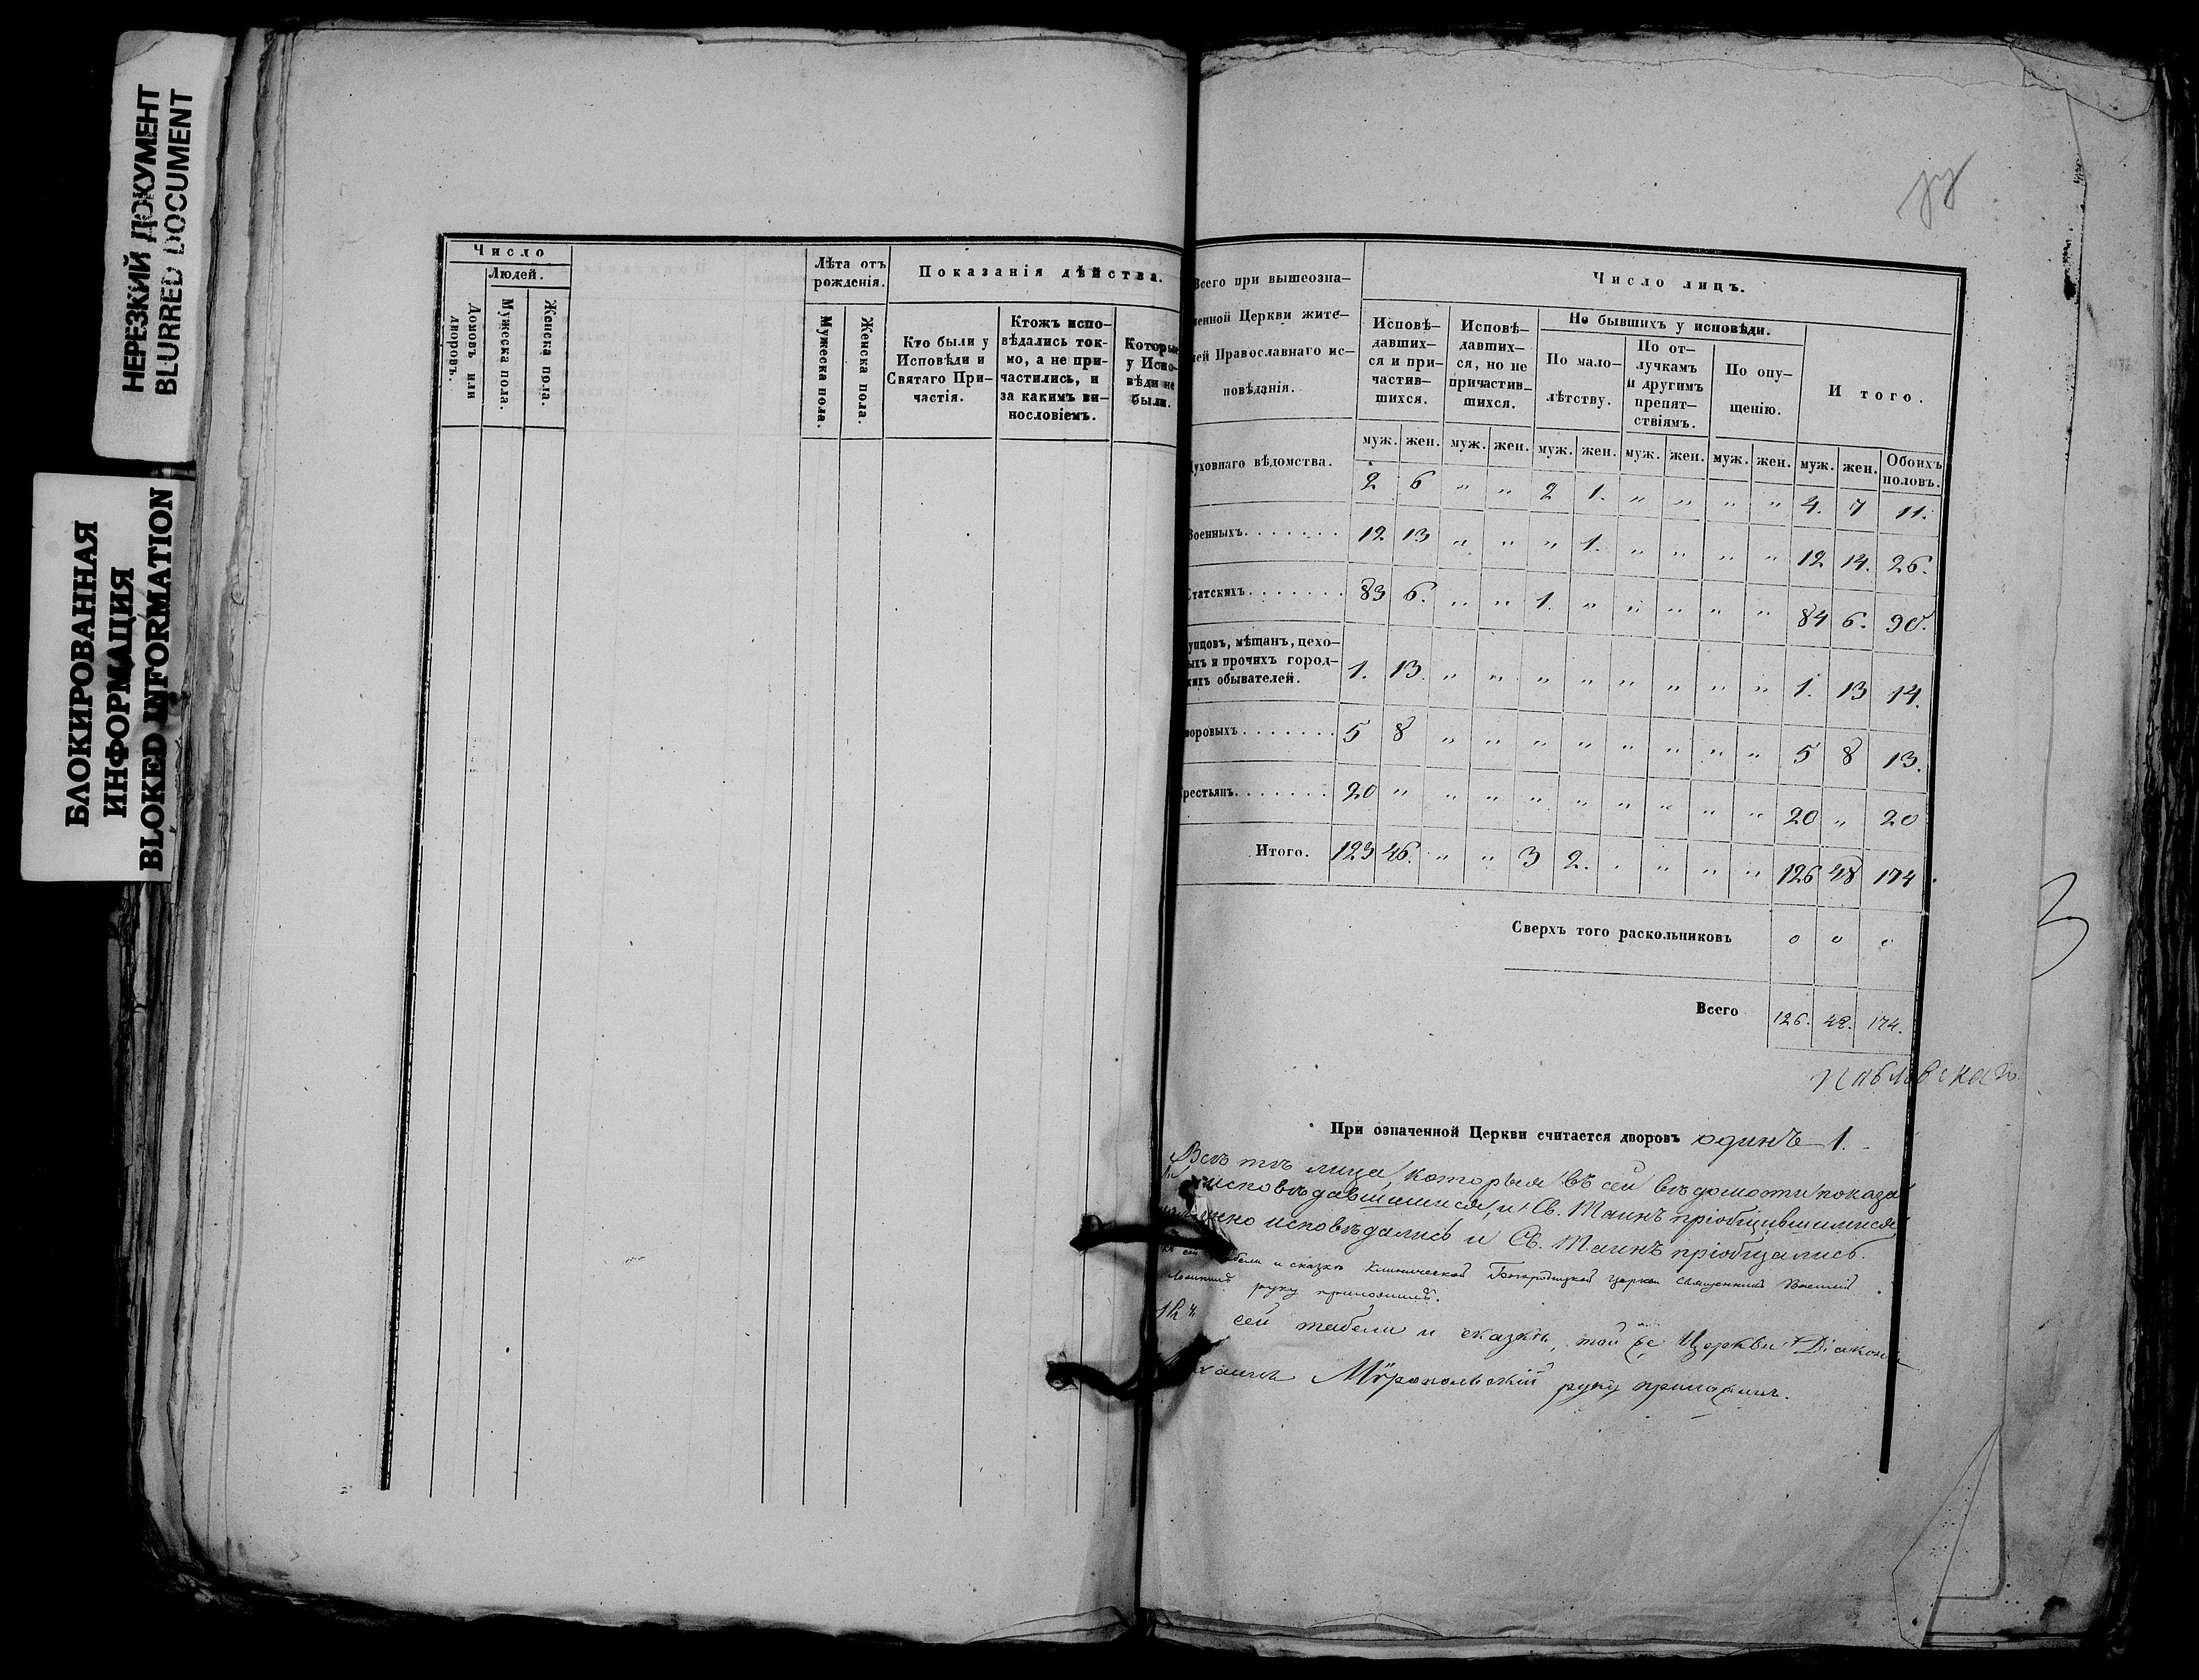 НЕРЕЗКИЙ ДОКУМЕНТ
BLURRED DOCUMENT
БЛОКИРОВАННАЯ
ИНФОРМАЦИЯ
BLOKED INFORMATION
Число
Людей.
Домовъ или дворовъ.
Мужеска пола.
Женска пола.
Лѣта отъ
рожденія.
Мужеска пола.
Женска пола.
Показанія дѣйства.
Кто были у
Исповѣди и
Святаго При-
частія.
Ктожъ испо-
вѣдались ток-
мо, а не при-
частились, и
за какимъ ви-
нословіемъ.
Которые
у Испо-
вѣди не
были.
Всего при вышеозна-
ченной Церкви жите-
лей Православнаго ис-
повѣданія.
Число лицъ.
Исповѣ-
давших-
ся и при-
частив-
шихся.
Исповѣ-
давших-
ся, но не
причастив-
шихся.
Не бывшихъ у исповѣди.
По мало-
лѣтству.
По от-
лучкамъ
и другимъ
препят-
ствіямъ.
По опу-
щенію.
И того.
муж. жен. муж. жен. муж. жен. муж. жен. муж. жен. муж. жен. Обоихъ половъ.
Духовнаго вѣдомства. 2 6 " " 2 1. " " " " 4. 7 11.
Военныхъ. . . . . . . 12 13 " " " 1. " " " " 12 14. 26.
Статскихъ. . . . . . . 83 6. " " 1. " " " " " 84 6. 90.
упцовъ, мѣщанъ, цехо-
ыхъ и прочихъ город-
кихъ обывателей. 1. 13. " " " " " " " " 1. 13 14.
воровыхъ . . . . . . . 5 8 " " " " " " " " 5 8 13.
рестьянъ. . . . . . . 20 " " " " " " " " " 20 " 20
Итого. 123 46. " " 3 2. . " " " 126 48 174.
Сверхъ того раскольниковъ 0 0 0
Всего 126. 48. 174.
При означенной Церкви считается дворовъ одинъ 1.
Всѣ тѣ лица, которыя въ сей вѣдомости показа
исповѣдавшимися, и Св. Таинъ пріобщившимися,
исповѣдались и Св. Таинъ пріобщались.
и сказкѣ Клинической Богородицкой церкви священникъ Василій
руку приложилъ.
сей табели и сказкѣ, той же Церкви Діаконъ
Мѵропольскій руку приложилъ.